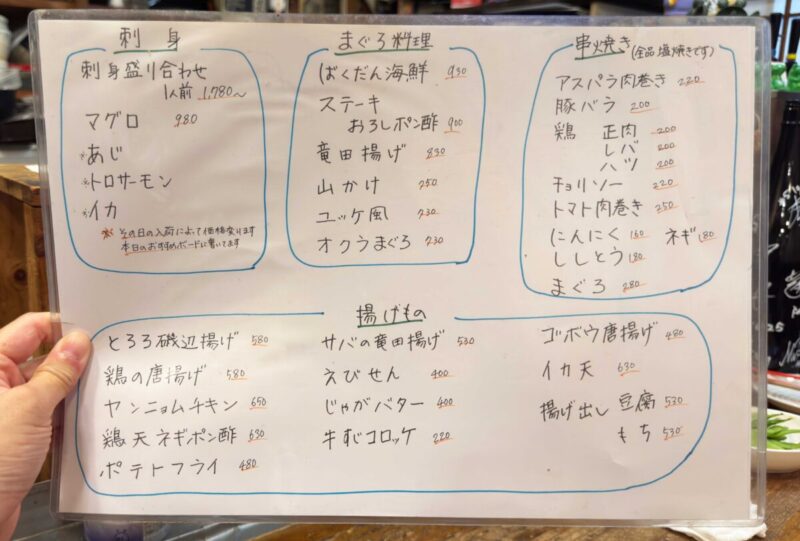 刺身
刺身盛り合わせ
1人前 1,780〜
マグロ 980
※あじ
※トロサーモン
※イカ
※その日の入荷によって価格変ります
本日のおすすめボードに書いてます
まぐろ料理
ばくだん海鮮 930
ステーキ
おろしポン酢 900
竜田揚げ 830
山かけ 750
ユッケ風 730
オクラまぐろ 730
串焼き (全品塩焼きです)
アスパラ肉巻き 220
豚バラ 200
鶏 正肉 200
レバ 200
ハツ 200
チョリソー 220
トマト肉巻き 250
にんにく 160 ネギ 180
ししとう 180
まぐろ 280
揚げもの
とろろ磯辺揚げ 580
鶏の唐揚げ 580
ヤンニョムチキン 650
鶏天ネギポン酢 630
ポテトフライ 480
サバの竜田揚げ 530
えびせん 400
じゃがバター 400
牛すじコロッケ 220
ゴボウ唐揚げ 480
イカ天 630
揚げ出し 豆腐 530
もち 530